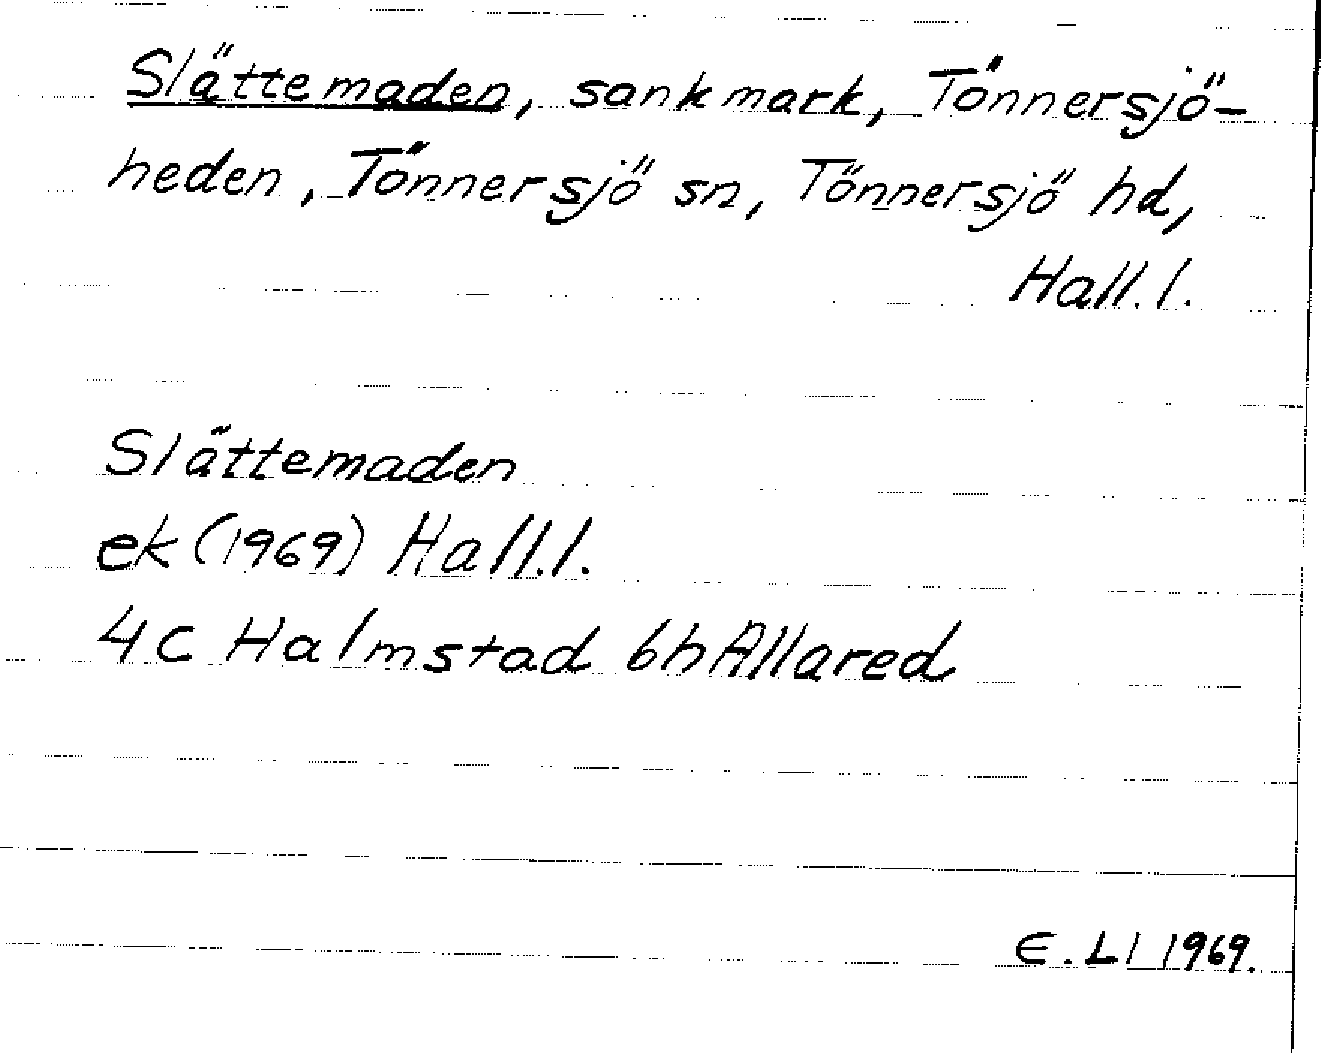 Slättemaden, sankmark, Tönnersjö-
heden, Tönnersjö sn, Tönnersjö hd,
Hall.l.
Slättemaden
ek (1969) Hall.l.
4C Halmstad 6h Allared
E. Ll 1969.